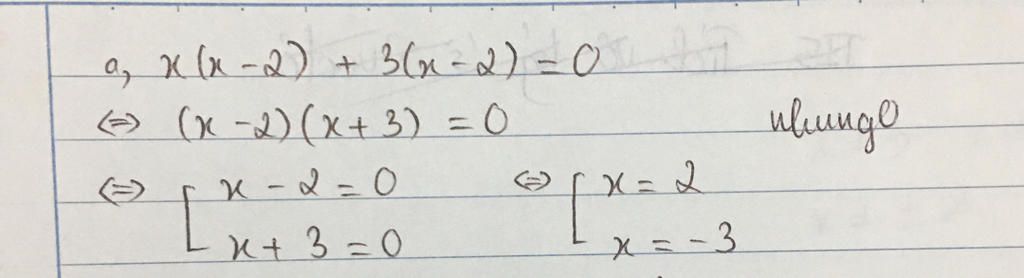 a, x(x-2) + 3(x-2) = 0
⇔ (x-2)(x+3) = 0 nhung0
⇔ [ x - 2 = 0 ⇔ [ x = 2
x + 3 = 0 x = -3